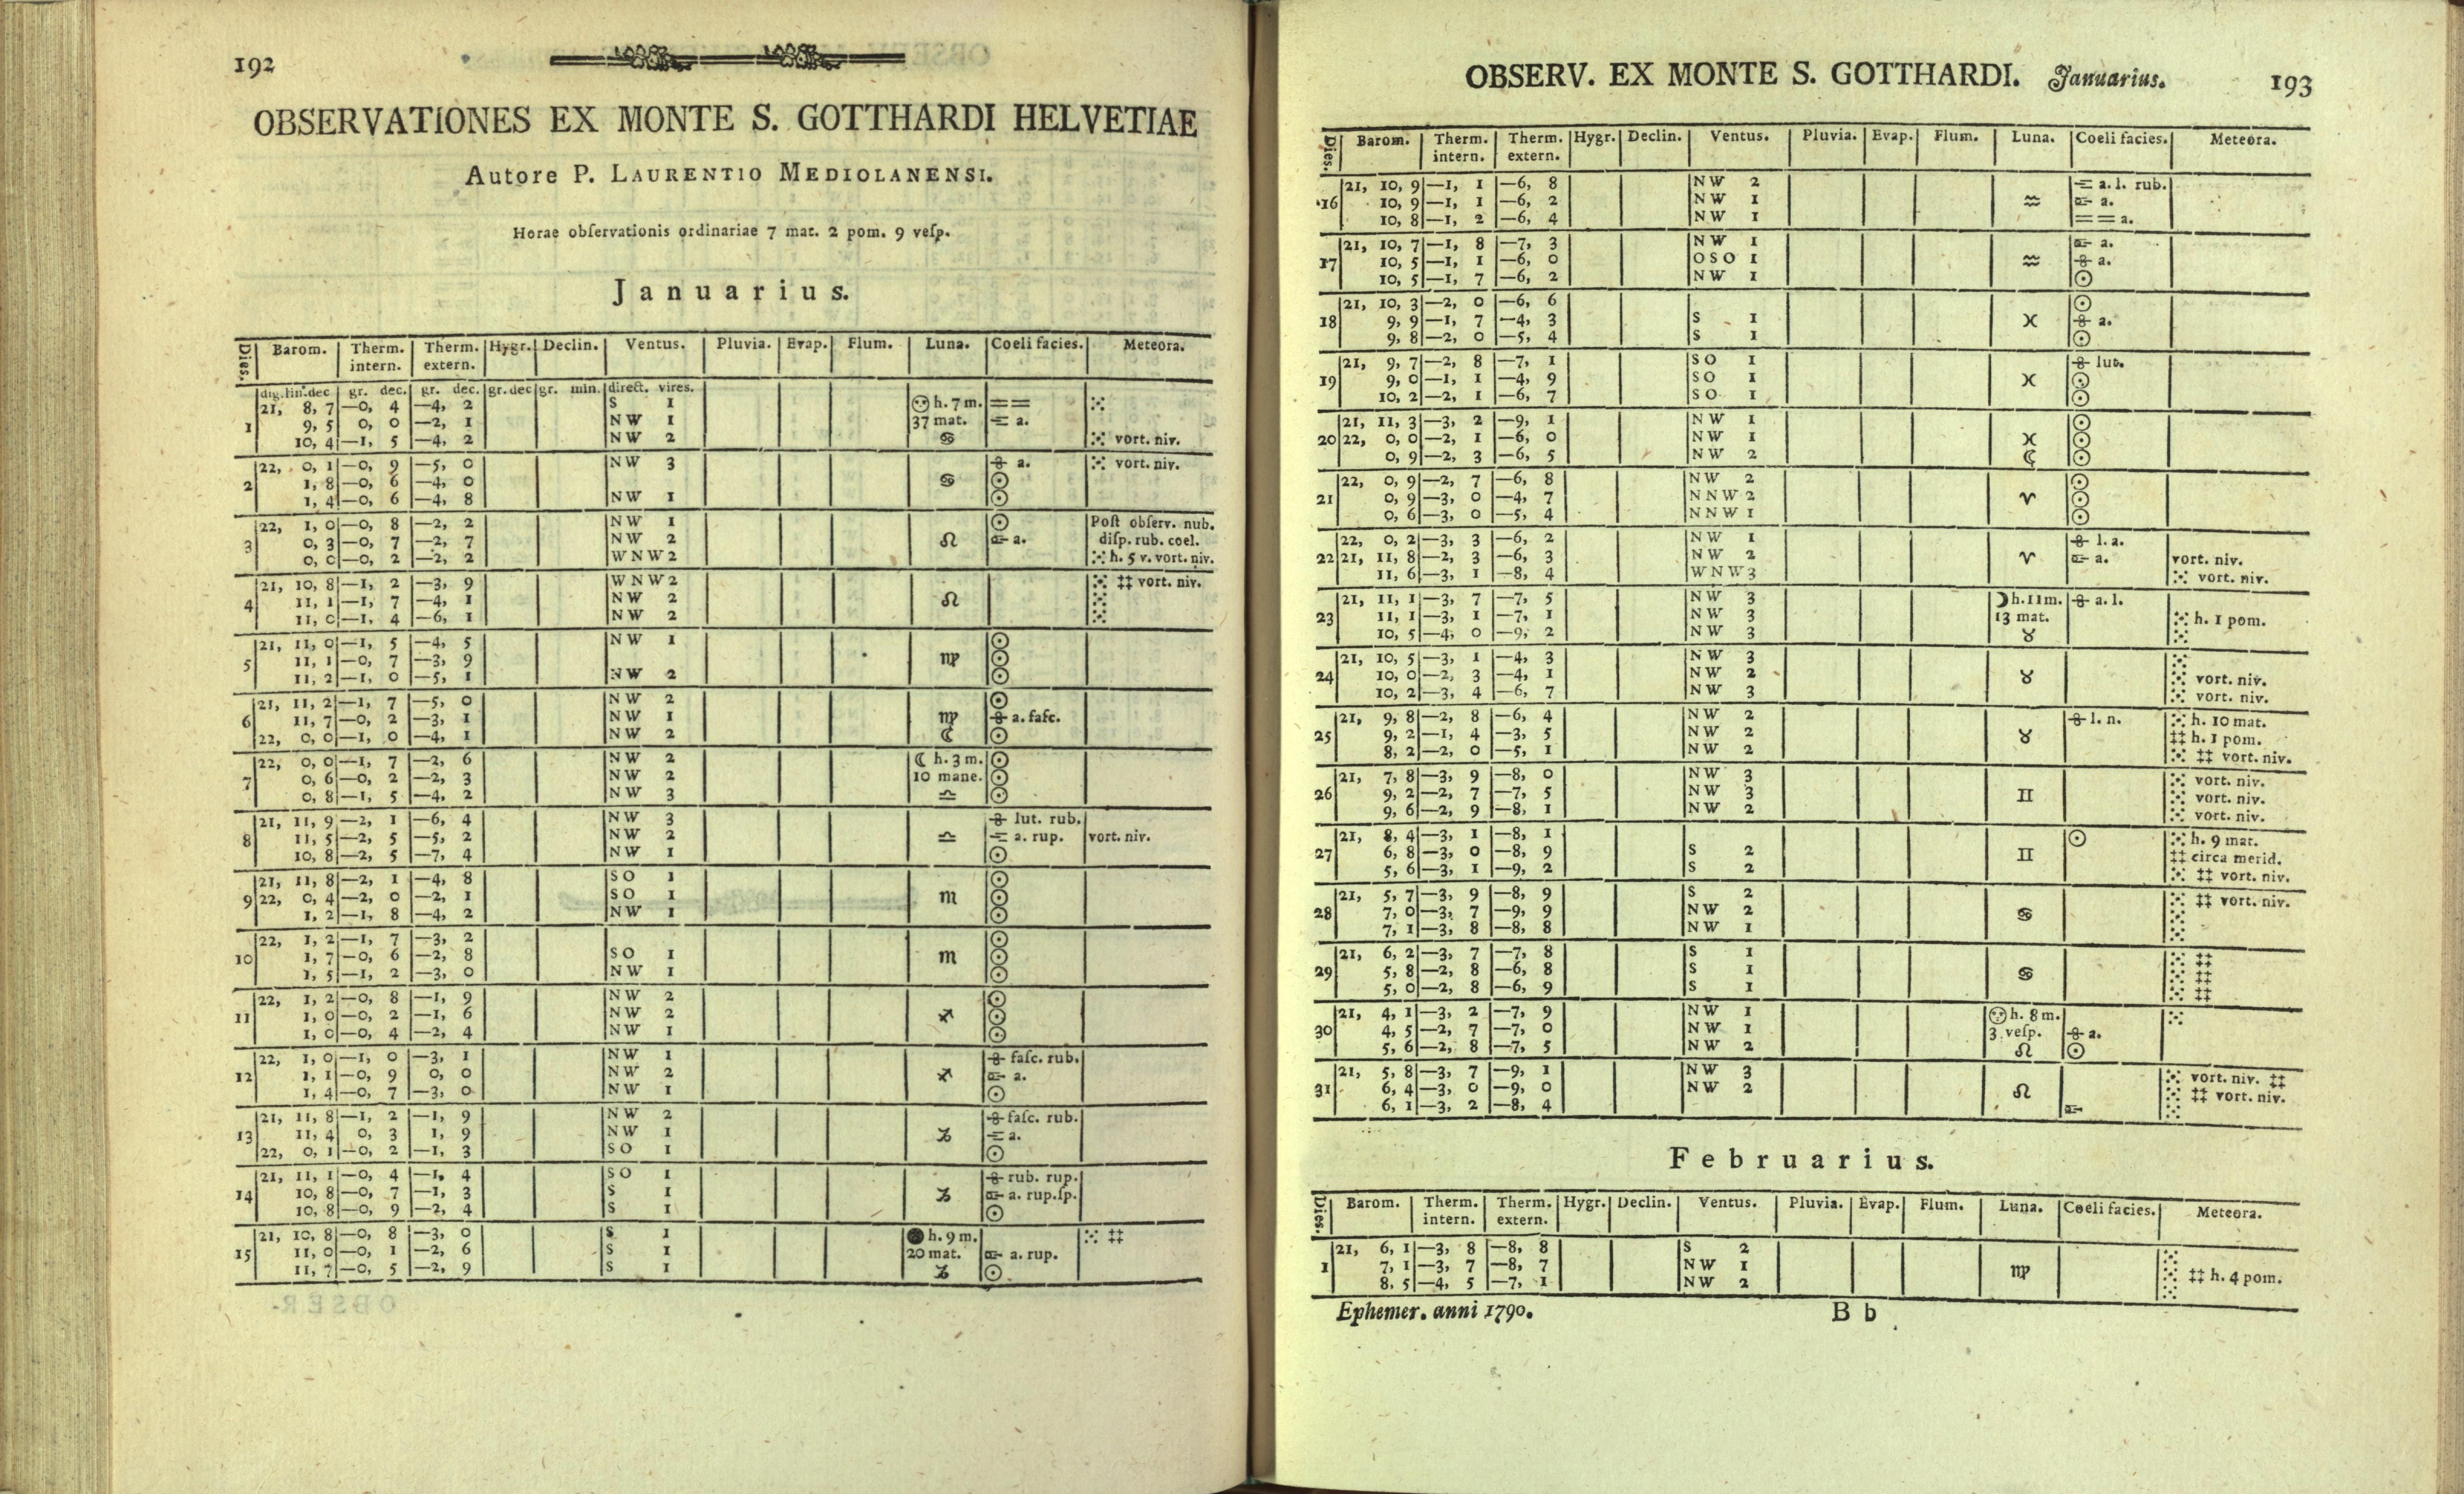 192
OBSERVATIONES EX MONTE S. GOTTHARDI HELVETIAE
Autore P. LAURENTIO MEDIOLANENSI.
Horae obſervationis ordinariae 7 mat. 2 pom. 9 veſp.
Januarius.
Dies. Barom. Therm. intern. Therm. extern. Hygr. Declin. Ventus. Pluvia. Evap. Flum. Luna. Coeli facies. Meteora.
dig.lin.dec gr. dec. gr. dec. gr.dec gr. min. direct. vires.
21, 8, 7 —0, 4 —4, 2 S 1 h. 7 m. ==
1 9, 5 0, 0 —2, 1 NW 1 37 mat. a.
10, 4 —1, 5 —4, 2 NW 2 ♋ vort. niv.
22, 0, 1 —0, 9 —5, 0 NW 3 a. vort. niv.
2 1, 8 —0, 6 —4, 0 ♋ ☉
1, 4 —0, 6 —4, 8 NW 1 ☉
22, 1, 0 —0, 8 —2, 2 NW 1 ☉ Poſt obſerv. nub.
3 0, 3 —0, 7 —2, 7 NW 2 ♌ a. diſp. rub. coel.
0, 0 —0, 2 —2, 2 WNW 2 h. 5 v. vort. niv.
21, 10, 8 —1, 2 —3, 9 WNW 2 ‡‡ vort. niv.
4 11, 1 —1, 7 —4, 1 NW 2 ♌
11, 0 —1, 4 —6, 1 NW 2
21, 11, 0 —1, 5 —4, 5 NW 1 ☉
5 11, 1 —0, 7 —3, 9 ♍ ☉
11, 2 —1, 0 —5, 1 NW 2 ☉
21, 11, 2 —1, 7 —5, 0 NW 2 ☉
6 11, 7 —0, 2 —3, 1 NW 1 ♍ a. faſc.
22, 0, 0 —1, 0 —4, 1 NW 2 ☾ ☉
22, 0, 0 —1, 7 —2, 6 NW 2 ☾ h. 3 m. ☉
7 0, 6 —0, 2 —2, 3 NW 2 10 mane. ☉
0, 8 —1, 5 —4, 2 NW 3 ♎ ☉
21, 11, 9 —2, 1 —6, 4 NW 3 lut. rub.
8 11, 5 —2, 5 —5, 2 NW 2 ♎ a. rup. vort. niv.
10, 8 —2, 5 —7, 4 NW 1 ☉
21, 11, 8 —2, 1 —4, 8 SO 1 ☉
9 22, 0, 4 —2, 0 —2, 1 SO 1 ♏ ☉
1, 2 —1, 8 —4, 2 NW 1 ☉
22, 1, 2 —1, 7 —3, 2 ☉
10 1, 7 —0, 6 —2, 8 SO 1 ♏ ☉
1, 5 —1, 2 —3, 0 NW 1 ☉
22, 1, 2 —0, 8 —1, 9 NW 2 ☉
11 1, 0 —0, 2 —1, 6 NW 2 ♐ ☉
1, 0 —0, 4 —2, 4 NW 1 ☉
22, 1, 0 —1, 0 —3, 1 NW 1 faſc. rub.
12 1, 1 —0, 9 0, 0 NW 2 ♐ a.
1, 4 —0, 7 —3, 0 NW 1 ☉
21, 11, 8 —1, 2 —1, 9 NW 2 faſc. rub.
13 11, 4 0, 3 1, 9 NW 1 ♑ a.
22, 0, 1 —0, 2 —1, 3 SO 1 ☉
21, 11, 1 —0, 4 —1, 4 SO 1 rub. rup.
14 10, 8 —0, 7 —1, 3 S 1 ♑ a. rup.ſp.
10, 8 —0, 9 —2, 4 S 1 ☉
21, 10, 8 —0, 8 —3, 0 S 1 ● h. 9 m. ‡‡
15 11, 0 —0, 1 —2, 6 S 1 20 mat. a. rup.
11, 7 —0, 5 —2, 9 S 1 ♑ ☉
OBSERV. EX MONTE S. GOTTHARDI. Januarius. 193
Dies. Barom. Therm. intern. Therm. extern. Hygr. Declin. Ventus. Pluvia. Evap. Flum. Luna. Coeli facies. Meteora.
21, 10, 9 —1, 1 —6, 8 NW 2 a. l. rub.
16 10, 9 —1, 1 —6, 2 NW 1 ♒ a.
10, 8 —1, 2 —6, 4 NW 1 == a.
21, 10, 7 —1, 8 —7, 3 NW 1 a.
17 10, 5 —1, 1 —6, 0 OSO 1 ♒ a.
10, 5 —1, 7 —6, 2 NW 1 ☉
21, 10, 3 —2, 0 —6, 6 ☉
18 9, 9 —1, 7 —4, 3 S 1 ♓ a.
9, 8 —2, 0 —5, 4 S 1 ☉
21, 9, 7 —2, 8 —7, 1 SO 1 lut.
19 9, 0 —1, 1 —4, 9 SO 1 ♓ ☉
10, 2 —2, 1 —6, 7 SO 1 ☉
21, 11, 3 —3, 2 —9, 1 NW 1 ☉
20 22, 0, 0 —2, 1 —6, 0 NW 1 ♓ ☉
0, 9 —2, 3 —6, 5 NW 2 ☾ ☉
22, 0, 9 —2, 7 —6, 8 NW 2 ☉
21 0, 9 —3, 0 —4, 7 NNW 2 ♈ ☉
0, 6 —3, 0 —5, 4 NNW 1 ☉
22, 0, 2 —3, 3 —6, 2 NW 1 l. a.
22 21, 11, 8 —2, 3 —6, 3 NW 2 ♈ a. vort. niv.
11, 6 —3, 1 —8, 4 WNW 3 vort. niv.
21, 11, 1 —3, 7 —7, 5 NW 3 ☽ h. 11 m. a. l.
23 11, 1 —3, 1 —7, 1 NW 3 13 mat. h. 1 pom.
10, 5 —4, 0 —9, 2 NW 3 ♉
21, 10, 5 —3, 1 —4, 3 NW 3
24 10, 0 —2, 3 —4, 1 NW 2 ♉ vort. niv.
10, 2 —3, 4 —6, 7 NW 3 vort. niv.
21, 9, 8 —2, 8 —6, 4 NW 2 l. n. h. 10 mat.
25 9, 2 —1, 4 —3, 5 NW 2 ♉ ‡‡ h. 1 pom.
8, 2 —2, 0 —5, 1 NW 2 ‡‡ vort. niv.
21, 7, 8 —3, 9 —8, 0 NW 3 vort. niv.
26 9, 2 —2, 7 —7, 5 NW 3 ♊ vort. niv.
9, 6 —2, 9 —8, 1 NW 2 vort. niv.
21, 8, 4 —3, 1 —8, 1 ☉ h. 9 mat.
27 6, 8 —3, 0 —8, 9 S 2 ♊ ‡‡ circa merid.
5, 6 —3, 1 —9, 2 S 2 ‡‡ vort. niv.
21, 5, 7 —3, 9 —8, 9 S 2 ‡‡ vort. niv.
28 7, 0 —3, 7 —9, 9 NW 2 ♋
7, 1 —3, 8 —8, 8 NW 1
21, 6, 2 —3, 7 —7, 8 S 1 ‡‡
29 5, 8 —2, 8 —6, 8 S 1 ♋ ‡‡
5, 0 —2, 8 —6, 9 S 1 ‡‡
21, 4, 1 —3, 2 —7, 9 NW 1 h. 8 m.
30 4, 5 —2, 7 —7, 0 NW 1 3 veſp. a.
5, 6 —2, 8 —7, 5 NW 2 ♌ ☉
21, 5, 8 —3, 7 —9, 1 NW 3 vort. niv. ‡‡
31 6, 4 —3, 0 —9, 0 NW 2 ♌ ‡‡ vort. niv.
6, 1 —3, 2 —8, 4
Februarius.
Dies. Barom. Therm. intern. Therm. extern. Hygr. Declin. Ventus. Pluvia. Evap. Flum. Luna. Coeli facies. Meteora.
21, 6, 1 —3, 8 —8, 8 S 2
1 7, 1 —3, 7 —8, 7 NW 1 ♍ ‡‡ h. 4 pom.
8. 5 —4, 5 —7, 1 NW 2
Ephemer. anni 1790. B b